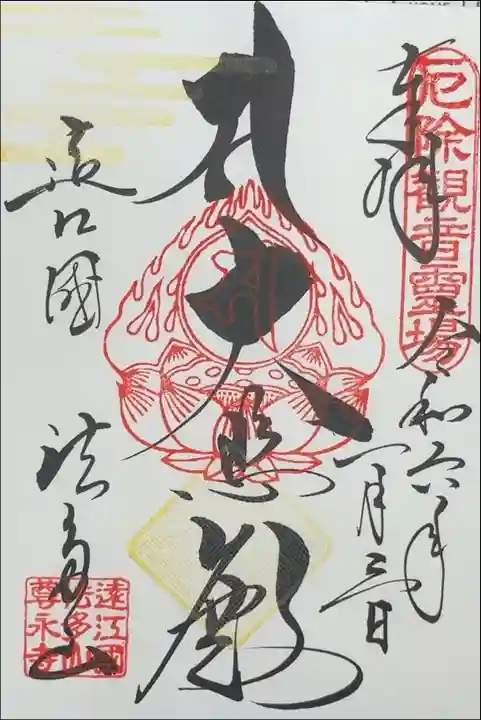 厄除観音霊場
奉拝
令和六年
一月三日
大悲殿
遠江國
法多山
遠江國
法多山
尊永寺